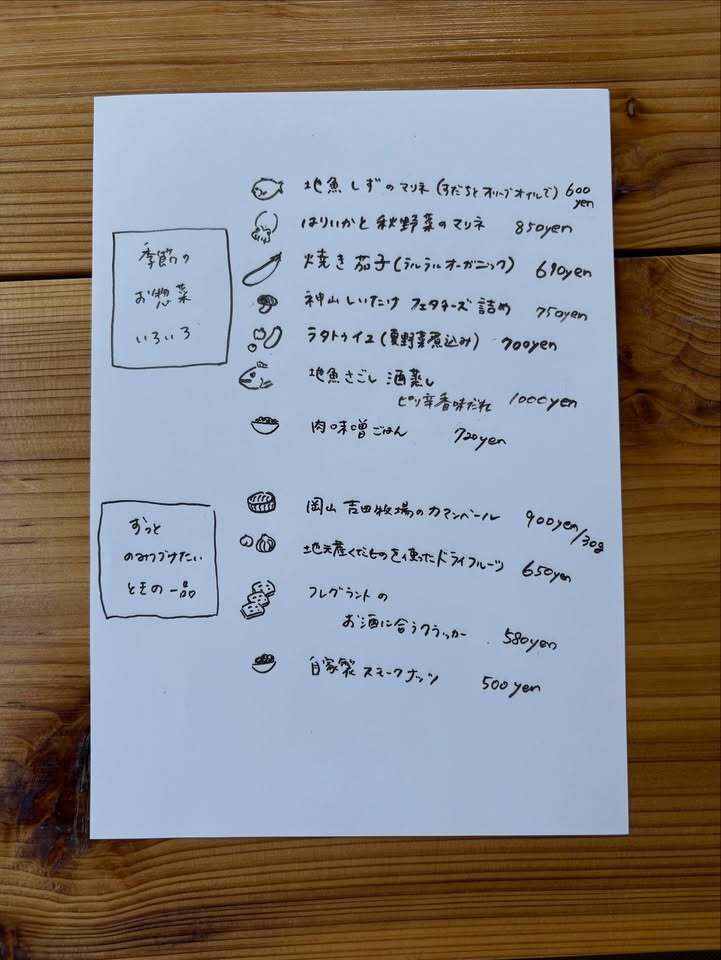 季節の
お惣菜
いろいろ
地魚 しずのマリネ (すだちとオリーブオイルで) 600 yen
はりいかと 秋野菜のマリネ 850yen
焼き茄子 (ラルラルオーガニック) 690yen
神山しいたけ フェタチーズ 詰め 750yen
ラタトゥイユ (夏野菜煮込み) 700yen
地魚さごし 酒蒸し
ピリ辛香味だれ 1000yen
肉味噌ごはん 720yen
ずっと
のみつづけたい
ときの一品
岡山 吉田牧場のカマンベール 900yen/30g
地元産くだものを使ったドライフルーツ 650yen
フレグラントの
お酒に合うクラッカー 580yen
自家製 スモークナッツ 500yen